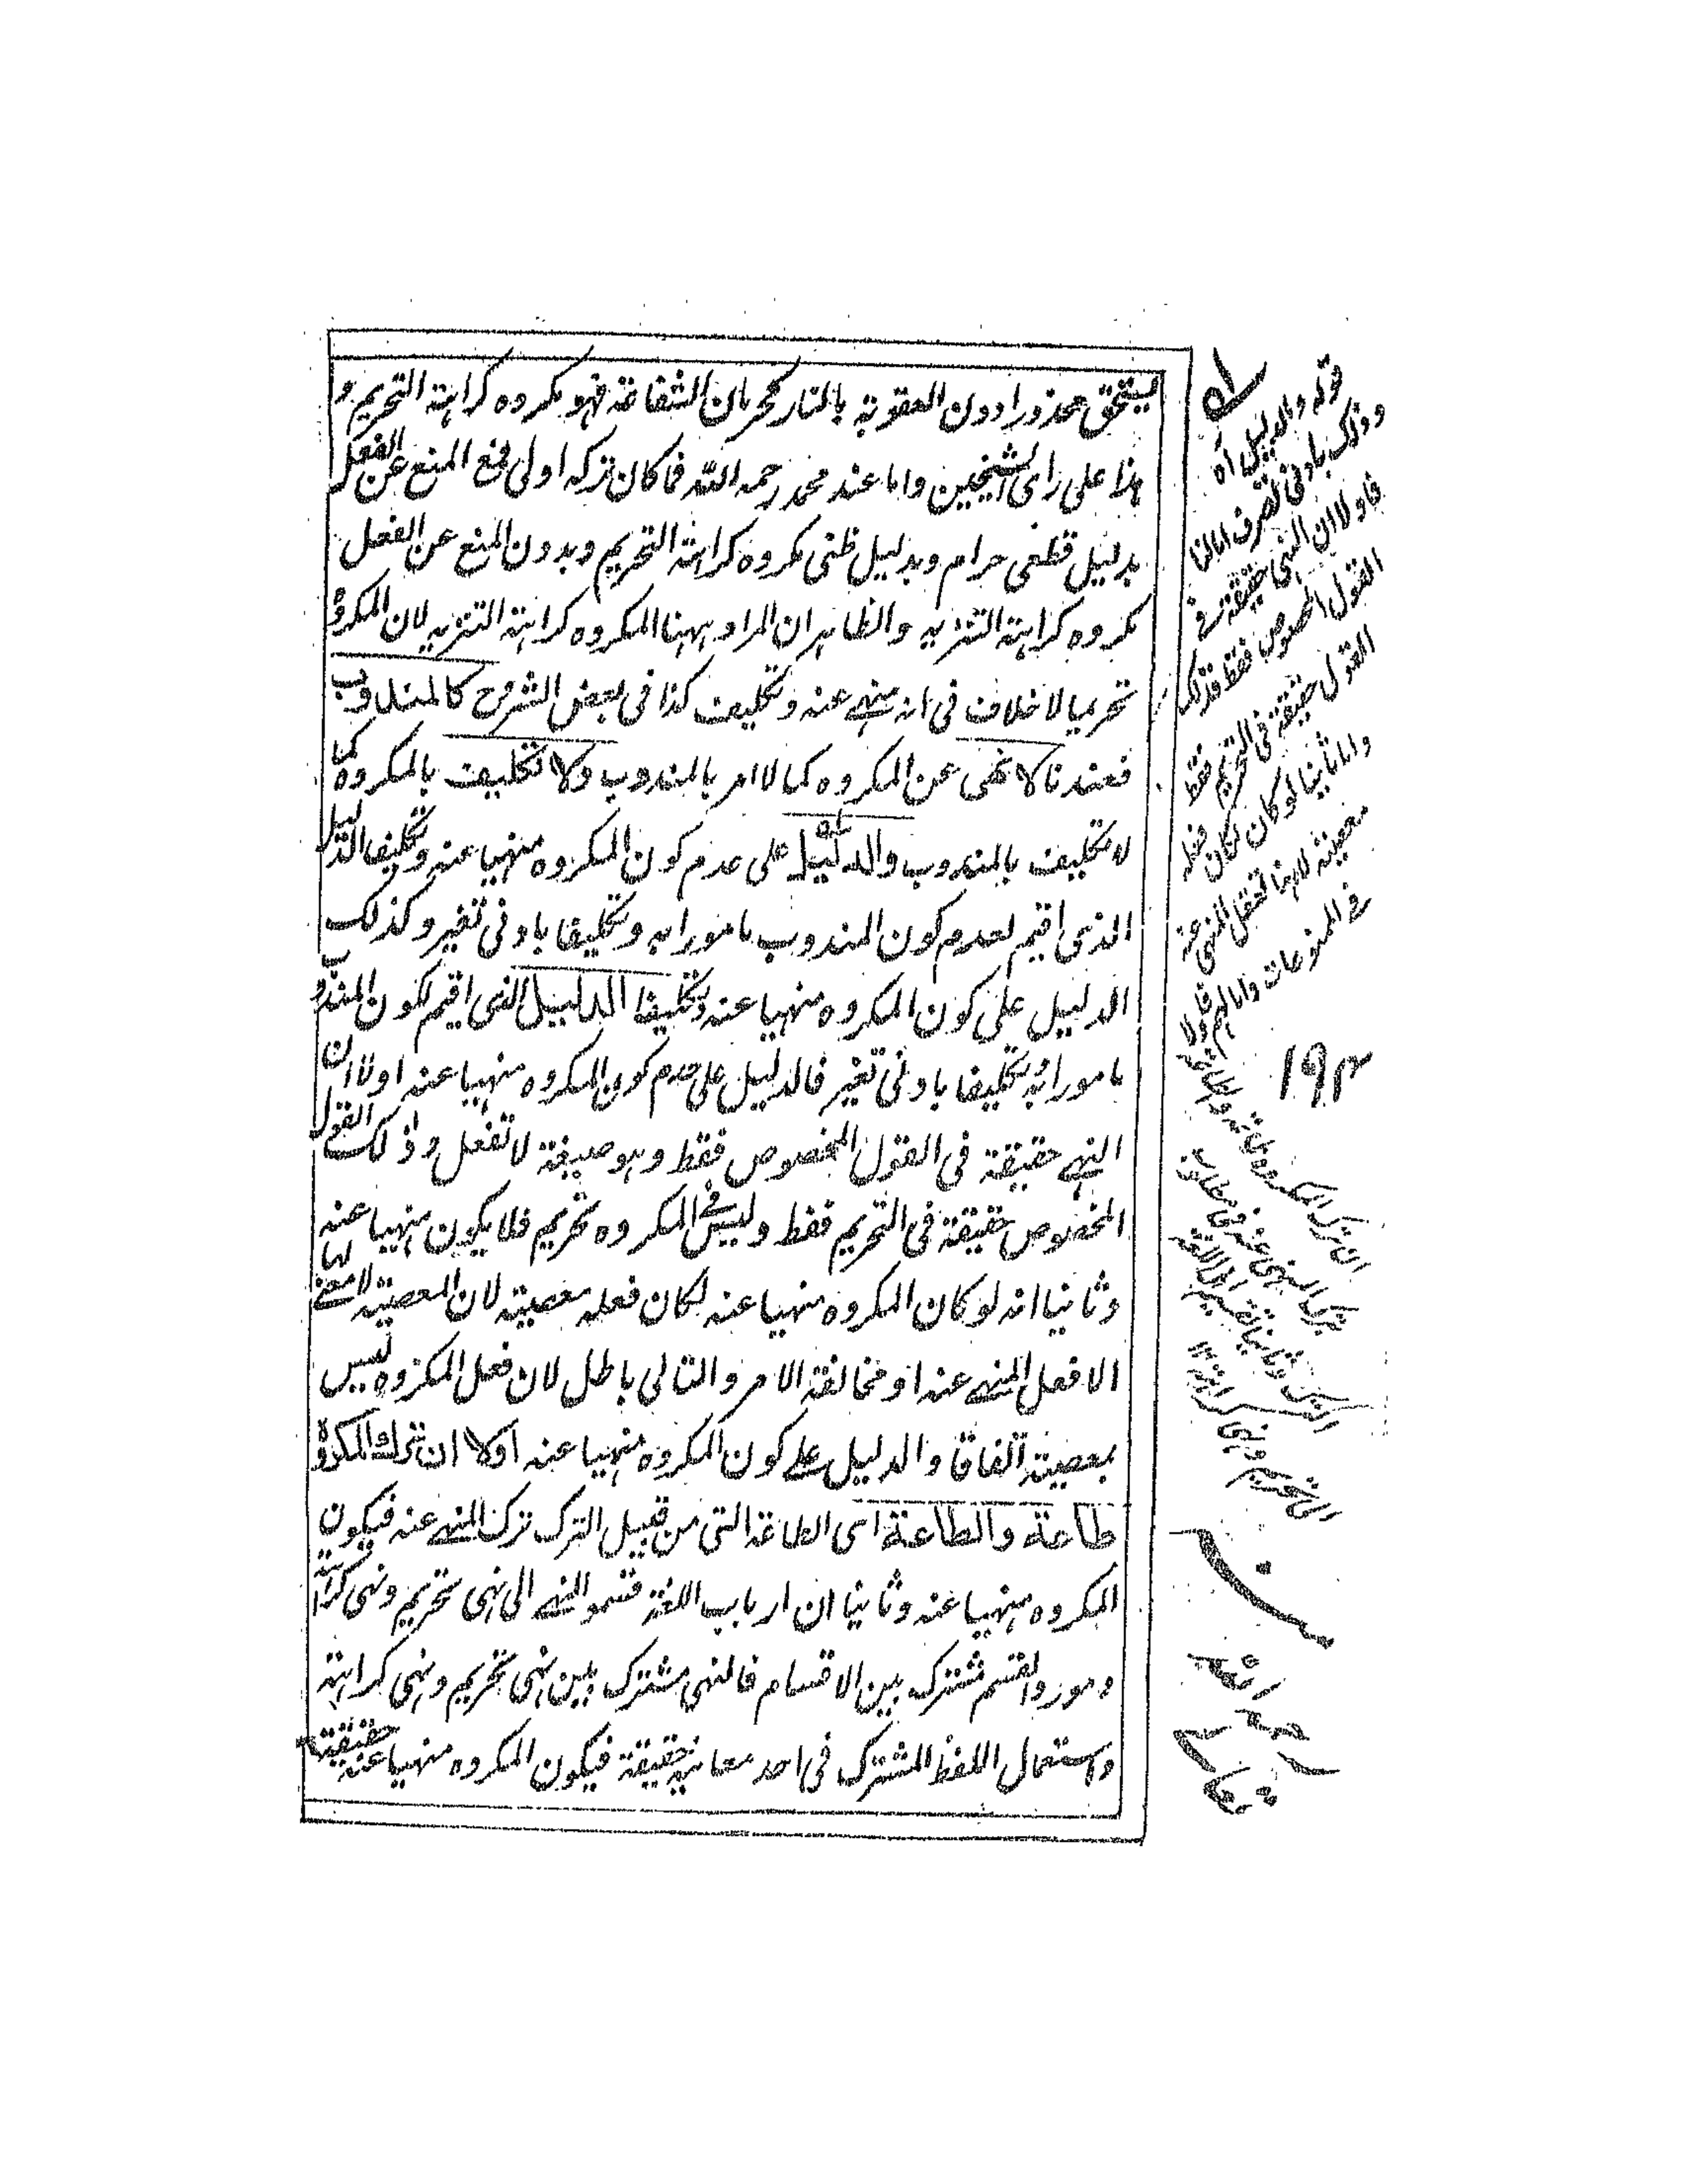 يستحق محذورا دون العقوبة بالنار كحرمان الشفاعة فهو مكروه كراهة التحريم و
هذا على راى الشيخين واما عند محمد رحمه الله فما كان تركه اولى فمع المنع عن الفعل
بدليل قطعى حرام وبدليل ظنى مكروه كراهة التحريم وبدون المنع عن الفعل
مكروه كراهة التنزيه والظاهر ان المراد ههنا المكروه كراهة التنزيه لان المكروه
تحريما لا خلاف فى انه منهى عنه وتكليف كذا فى بعض الشروح كالمندوب
فعندنا لا نهى عن المكروه كما لا امر بالمندوب ولا تكليف بالمكروه كما
لا تكليف بالمندوب والدليل على عدم كون المكروه منهيا عنه وتكليفا الدليل
الذى اقيم لعدم كون المندوب مامورا به وتكليفا بادنى تغير وكذلك
الدليل على كون المكروه منهيا عنه وتكليفا الدليل الذى اقيم لكون المندوب
مامورا به وتكليفا بادنى تغير فالدليل على عدم كون المكروه منهيا عنه اولا ان
النهى حقيقة فى القول المخصوص فقط وهو صيغة لا تفعل وذلك القول
المخصوص حقيقة فى التحريم فقط وليس فى المكروه تحريم فلا يكون منهيا عنه
وثانيا انه لو كان المكروه منهيا عنه لكان فعله معصية لان المعصية لا معنى لها
الا فعل المنهى عنه او مخالفة الامر والتالى باطل لان فعل المكروه ليس
بمعصية اتفاقا والدليل على كون المكروه منهيا عنه اولا ان ترك المكروه
طاعة والطاعة اى الطاعة التى من قبيل الترك ترك المنهى عنه فيكون
المكروه منهيا عنه وثانيا ان ارباب اللغة قسموا النهى الى نهى تحريم ونهى كراهة
ومورد القسم مشترك بين الاقسام فالنهى مشترك بين نهى تحريم ونهى كراهة
واستعمال اللفظ المشترك فى احد معانيه حقيقة فيكون المكروه منهيا عنه حقيقة
قوله والدليل اه
وذلك بادنى تصرف اما لنا
فاولا ان النهى حقيقة فى
القول المخصوص فقط وذلك
القول حقيقة فى التحريم فقط
واما ثانيا لو كان لكان فعله
معصية لانها فعل المنهى عنه
فى الممنوعات واما لهم فاولا
١٩٣
ان ترك المكروه طاعة